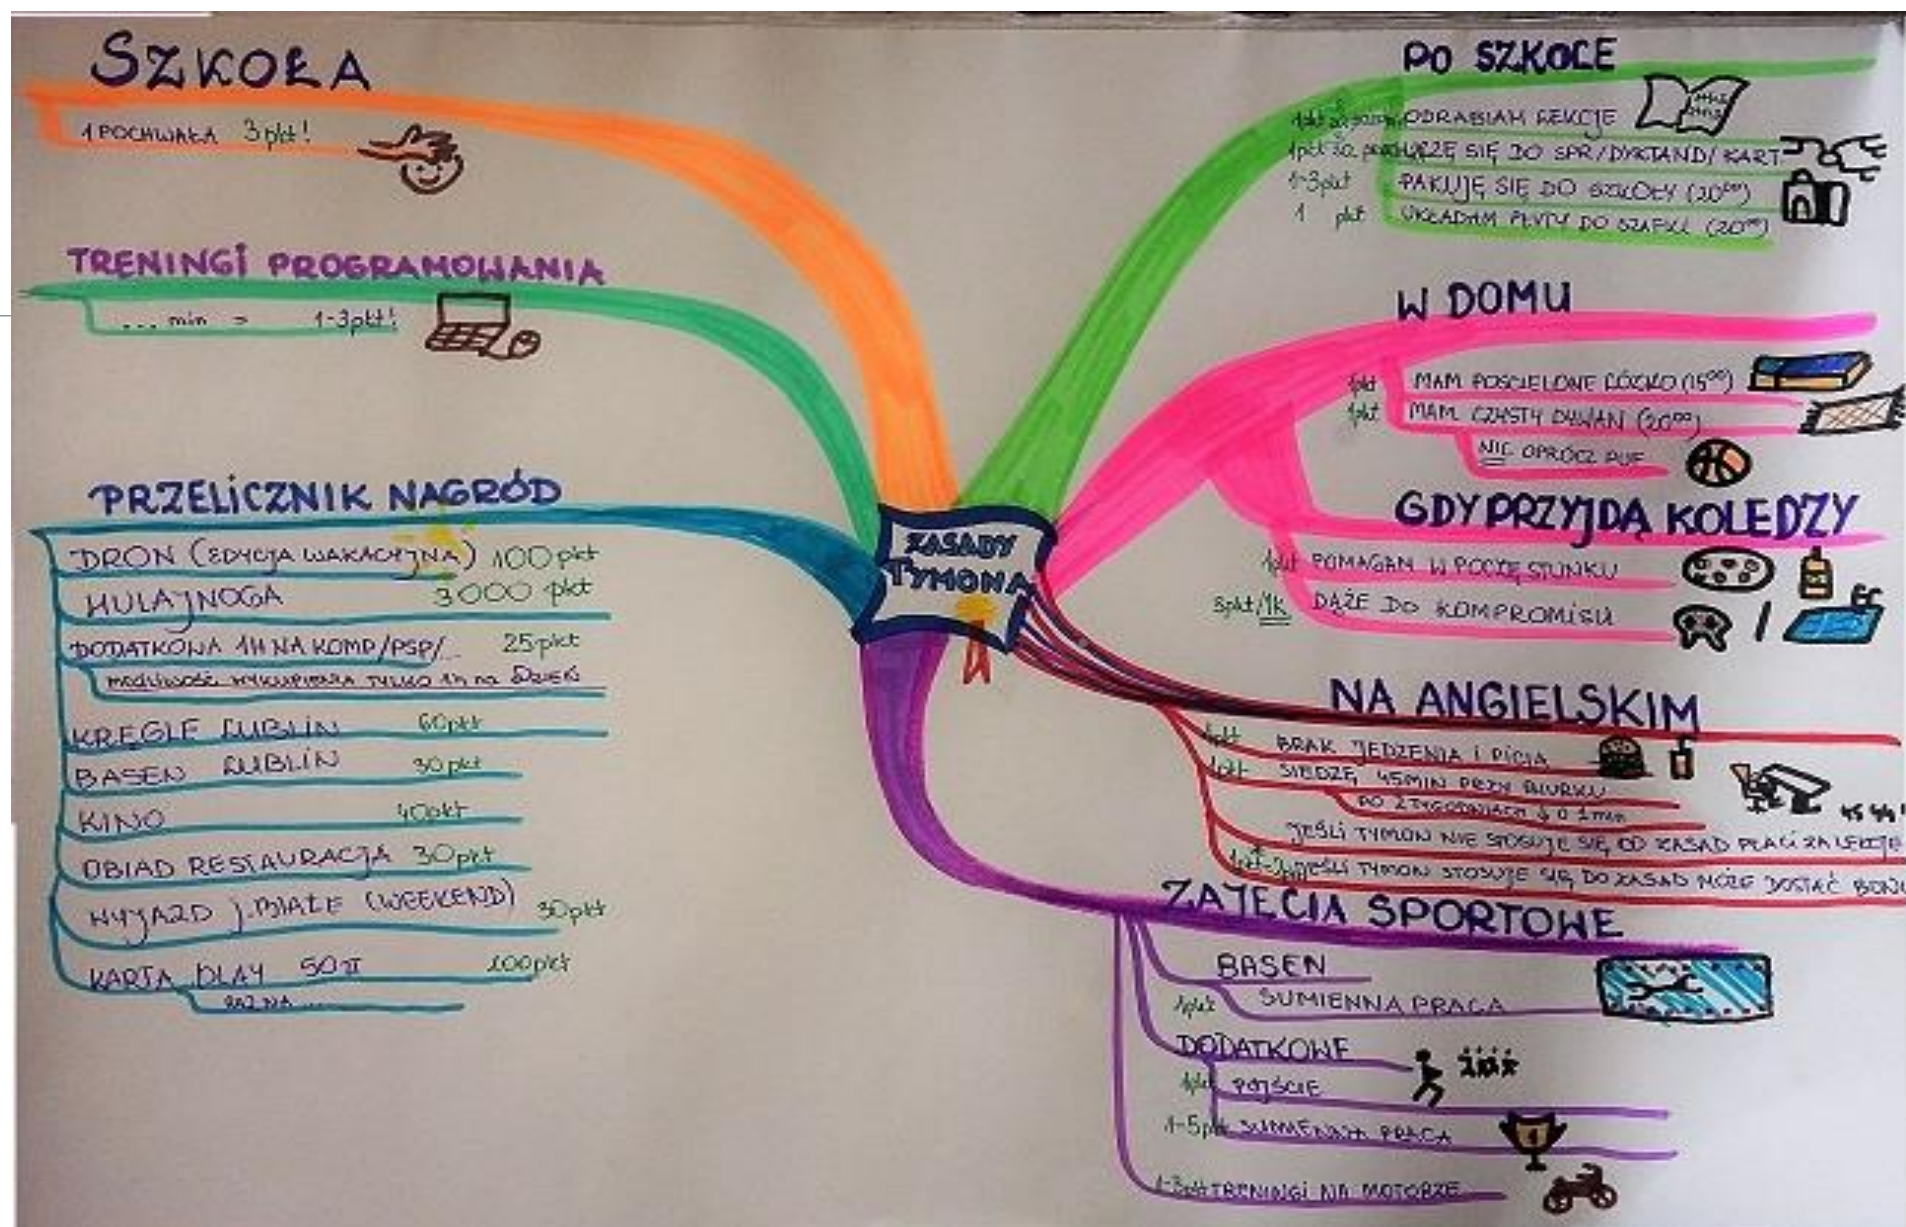 SZKOŁA
1 POCHWAŁA 3 pkt!
TRENINGI PROGRAMOWANIA
... min = 1-3pkt!
PRZELICZNIK NAGRÓD
DRON (EDYCJA WAKACYJNA) 100 pkt
HULAJNOGA 3000 pkt
DODATKOWA 1H NA KOMP/PSP/...
25 pkt
MOŻLIWOŚĆ WYKUPIENIA TYLKO 1h na DZIEŃ
KRĘGLE LUBLIN 60pkt
BASEN LUBLIN 30pkt
KINO 40pkt
OBIAD RESTAURACJA 30pkt
WYJAZD J.BIAŁE (WEEKEND) 30pkt
KARTA PLAY 50 zł 100pkt
RAZ NA ...
ZASADY
TYMONA
PO SZKOLE
1pkt ODRABIAM LEKCJE
1pkt za UCZĘ SIĘ DO SPR/DYKTAND/KART
1-3pkt PAKUJĘ SIĘ DO SZKOŁY (20⁰⁰)
1 pkt UKŁADAM PŁYTY DO SZAFKI (20⁰⁰)
W DOMU
1pkt MAM POŚCIELONE ŁÓŻKO (15⁰⁰)
1pkt MAM CZYSTY DYWAN (20⁰⁰)
NIC OPRÓCZ PUF
GDY PRZYJDĄ KOLEDZY
1pkt POMAGAM W POCZĘSTUNKU
5pkt/1k DĄŻĘ DO KOMPROMISU
NA ANGIELSKIM
1pkt BRAK JEDZENIA I PICIA
1pkt SIEDZĘ 45MIN PRZY BIURKU
PO 2 TYGODNIACH ↓ o 1 min
45 44
JEŚLI TYMON NIE STOSUJE SIĘ DO ZASAD PŁACI ZA LEKCJE
JEŚLI TYMON STOSUJE SIĘ DO ZASAD MOŻE DOSTAĆ
ZAJĘCIA SPORTOWE
BASEN
1pkt SUMIENNA PRACA
DODATKOWE
1pkt PÓJŚCIE
1-5pkt SUMIENNA PRACA
1
1-3pkt TRENINGI NA MOTORZE